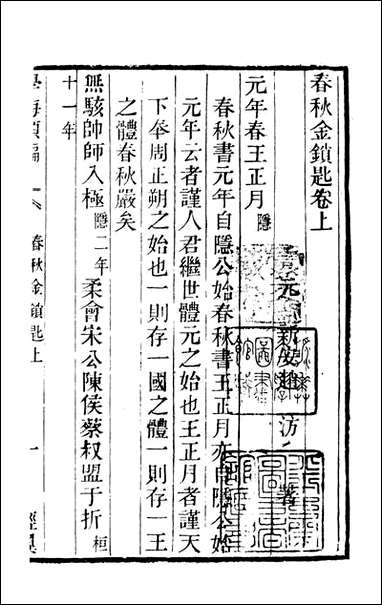 春秋金鎖匙卷上
元新安趙汸著
元年春王正月隱
春秋書元年自隱公始春秋書王正月亦自隱公始
元年云者謹人君繼世體元之始也王正月者謹天
下奉周正朔之始也一則存一國之體一則存一王
之體春秋嚴矣
無駭帥師入極隱二年柔會宋公陳侯蔡叔盟于折桓
十一年
學海類編
春秋金鎖匙上
一
經翼